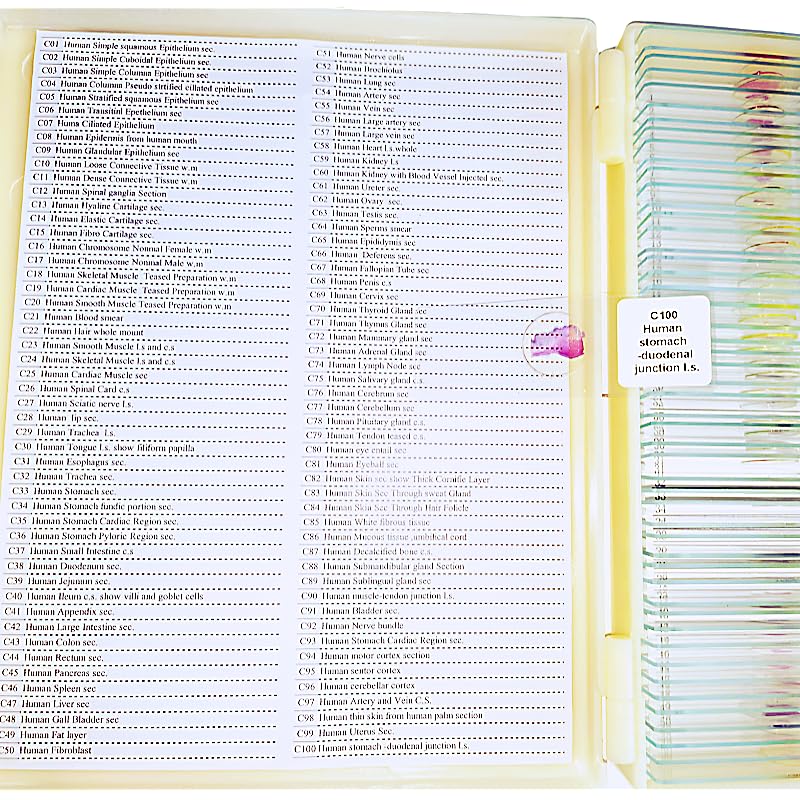 C01 Human Simple squamous Epithelium sec.
C02 Human Simple Cuboidal Epithelium sec.
C03 Human Simple Columna Epithelium sec
C04 Human Columna Pseudo strtified cillated epithelium
C05 Human Stratified squamous Epithelium sec
C06 Human Transitinl Epethelium sec
C07 Huma Ciliated Epithelium
C08 Human Epidermis from human mouth
C09 Human Glandular Epithelium sec
C10 Human Loose Connective Tissue w.m
C11 Human Dense Connective Tissue w.m
C12 Human Spinal ganglia Section
C13 Human Hyaline Cartilage sec.
C14 Human Elastic Cartilage sec.
C15 Human Fibro Cartilage sec.
C16 Human Chromosome Nonmal Female w.m
C17 Human Chromosome Nonmal Male w.m
C18 Human Skeletal Muscle Teased Preparation w.m
C19 Human Cardiac Muscle Teased Preparation w.m
C20 Human Smooth Muscle Teased Preparation w.m
C21 Human Blood smear
C22 Human Hair whole mount
C23 Human Smooth Muscle l.s and c.s
C24 Human Skeletal Muscle l.s and c.s
C25 Human Cardiac Muscle sec
C26 Human Spinal Card c.s
C27 Human Sciatic nerve l.s.
C28 Human lip sec.
C29 Human Trachea l.s.
C30 Human Tongue l.s. show filiform papilla
C31 Human Esophagus sec.
C32 Human Trachea sec.
C33 Human Stomach sec.
C34 Human Stomach fundic portion sec.
C35 Human Stomach Cardiac Region sec.
C36 Human Stomach Pyloric Region sec.
C37 Human Small Intestine c.s
C38 Human Duodenum sec.
C39 Human Jejunum sec.
C40 Human Ileum c.s. show villi and goblet cells
C41 Human Appendix sec.
C42 Human Large Intestine sec.
C43 Human Colon sec.
C44 Human Rectum sec.
C45 Human Pancreas sec.
C46 Human Spleen sec
C47 Human Liver sec
C48 Human Gall Bladder sec
C49 Human Fat layer
C50 Human Fibroblast
C51 Human Nerve cells
C52 Human
C53 Human Lung sec
C54 Human Artery sec
C55 Human Vein sec
C56 Human Large artery sec
C57 Human Large vein sec
C58 Human Heart l.s.whole
C59 Human Kidney l.s
C60 Human Kidney with Blood Vessel Injected sec.
C61 Human Ureter sec.
C62 Human Ovary sec.
C63 Human Testis sec.
C64 Human Sperms smear
C65 Human Epididymis sec
C66 Human Deferens sec.
C67 Human Fallopian Tube sec
C68 Human Penis c.s
C69 Human Cervix sec
C70 Human Thyroid Gland sec
C71 Human Thymus Gland sec
C72 Human Mammary gland sec
C73 Human Adrenal Gland sec
C74 Human Lymph Node sec
C75 Human Salivary gland c.s.
C76 Human Cerebrum sec
C77 Human Cerebellum sec
C78 Human Pituitary gland c.s.
C79 Human Tendon teased c.s.
C80 Human eye entail sec
C81 Human Eyeball sec
C82 Human Skin sec show Thick Cornific Layer
C83 Human Skin Sec Through sweat Gland
C84 Human Skin Sec Through Hair Folicle
C85 Human White fibrous tissue
C86 Human Mucous tissue ,umbilical cord
C87 Human Decalcified bone c.s.
C88 Human Submandibular gland Section
C89 Human Sublingual gland sec
C90 Human muscle-tendon junction l.s.
C91 Human Bladder sec.
C92 Human Nerve bundle
C93 Human Stomach Cardiac Region sec.
C94 Human motor cortex section
C95 Human senior cortex
C96 Human cerebellar cortex
C97 Human Artery and Vein C.S.
C98 Human thin skin from human palm section
C99 Human Uterus Sec.
C100 Human stomach -duodenal junction l.s.
C100
Human
stomach
-duodenal
junction l.s.